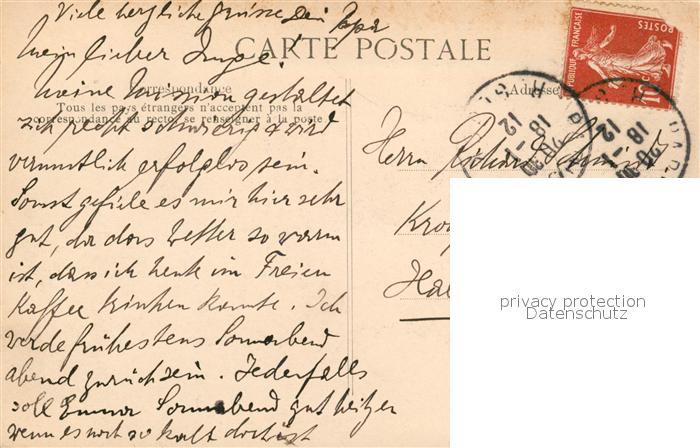 Viele herzliche Grüsse Dein Papa
Mein lieber Junge!
CARTE POSTALE
Meine Mission gestaltet
Correspondance
Tous les pays étrangers n'acceptent pas la
correspondance au recto se renseigner à la poste
sich recht schwierig & wird
vermutlich erfolglos sein.
Sonst gefiele es mir hier sehr
gut, da das Wetter so warm
ist, dass ich heute im Freien
Kaffee trinken konnte. Ich
werde frühestens Sonnabend
abend zurück sein. Jedenfalls
soll Emma Sonnabend gut heizen
wenn es noch so kalt dort ist
Adresse
REPUBLIQUE FRANÇAISE
POSTES
10
18
12
18
12
Herrn Richard
privacy protection
Datenschutz